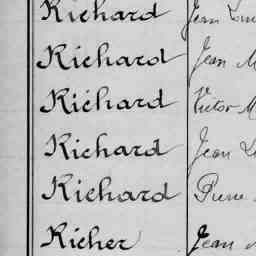 Richard Jean
Richard Jean
Richard Victor
Richard Jean
Richard Pierre
Richer Jean